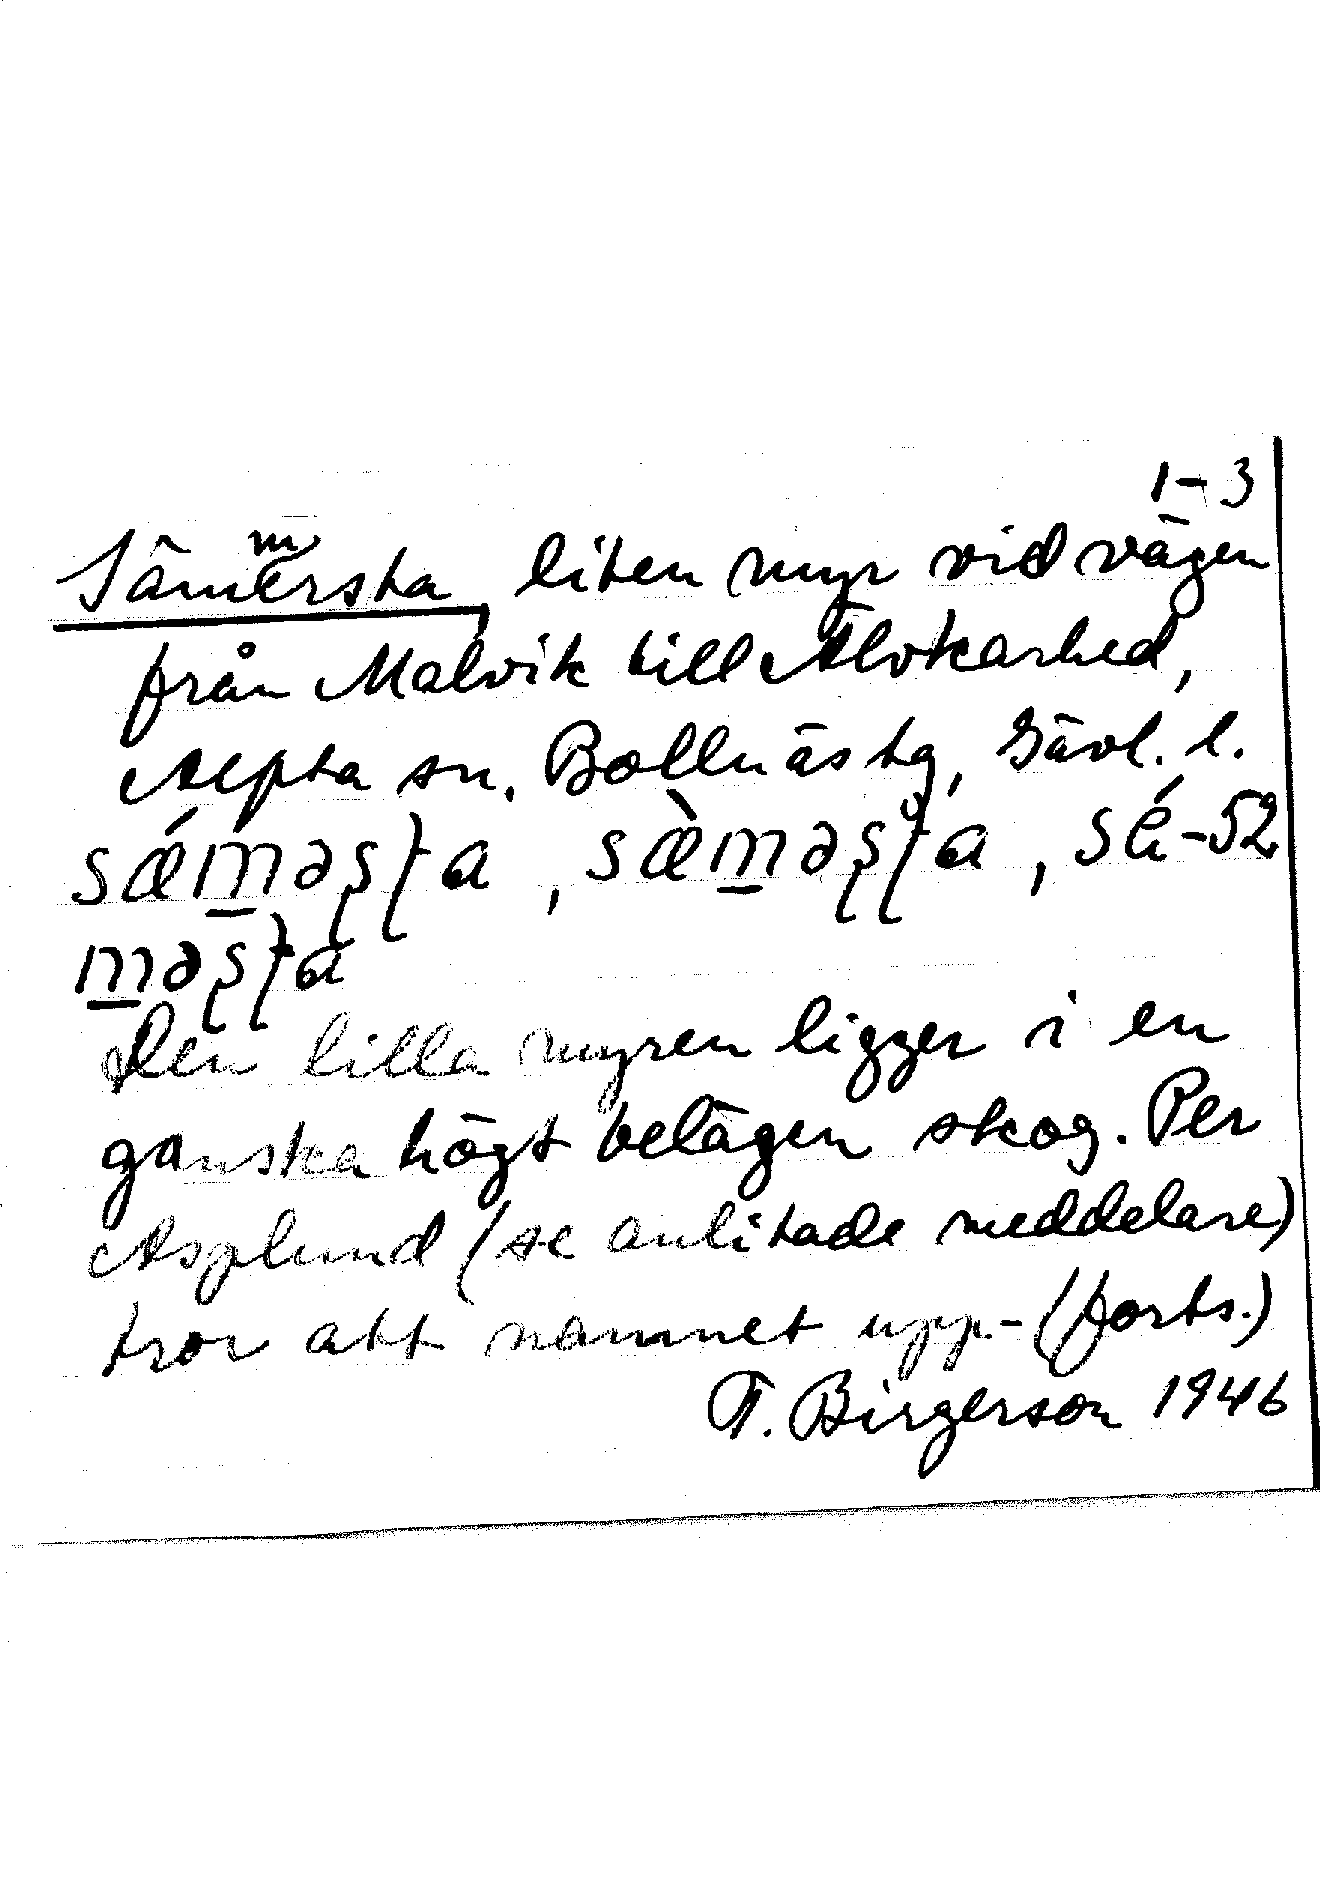 1-3
Sämmersta, liten myr vid vägen
från Malvik till Älvkarhed,
Alfta sn. Bollnäs tg, Gävl. l.
sǽm̲əʂʈa, sæ̀m̲əʂʈa, sǽ-52
m̲əʂʈa
Den lilla myren ligger i en
ganska högt belägen skog. Per
Asplund (se anlitade meddelare)
tror att namnet upp- (forts.)
T. Birgerson 1946